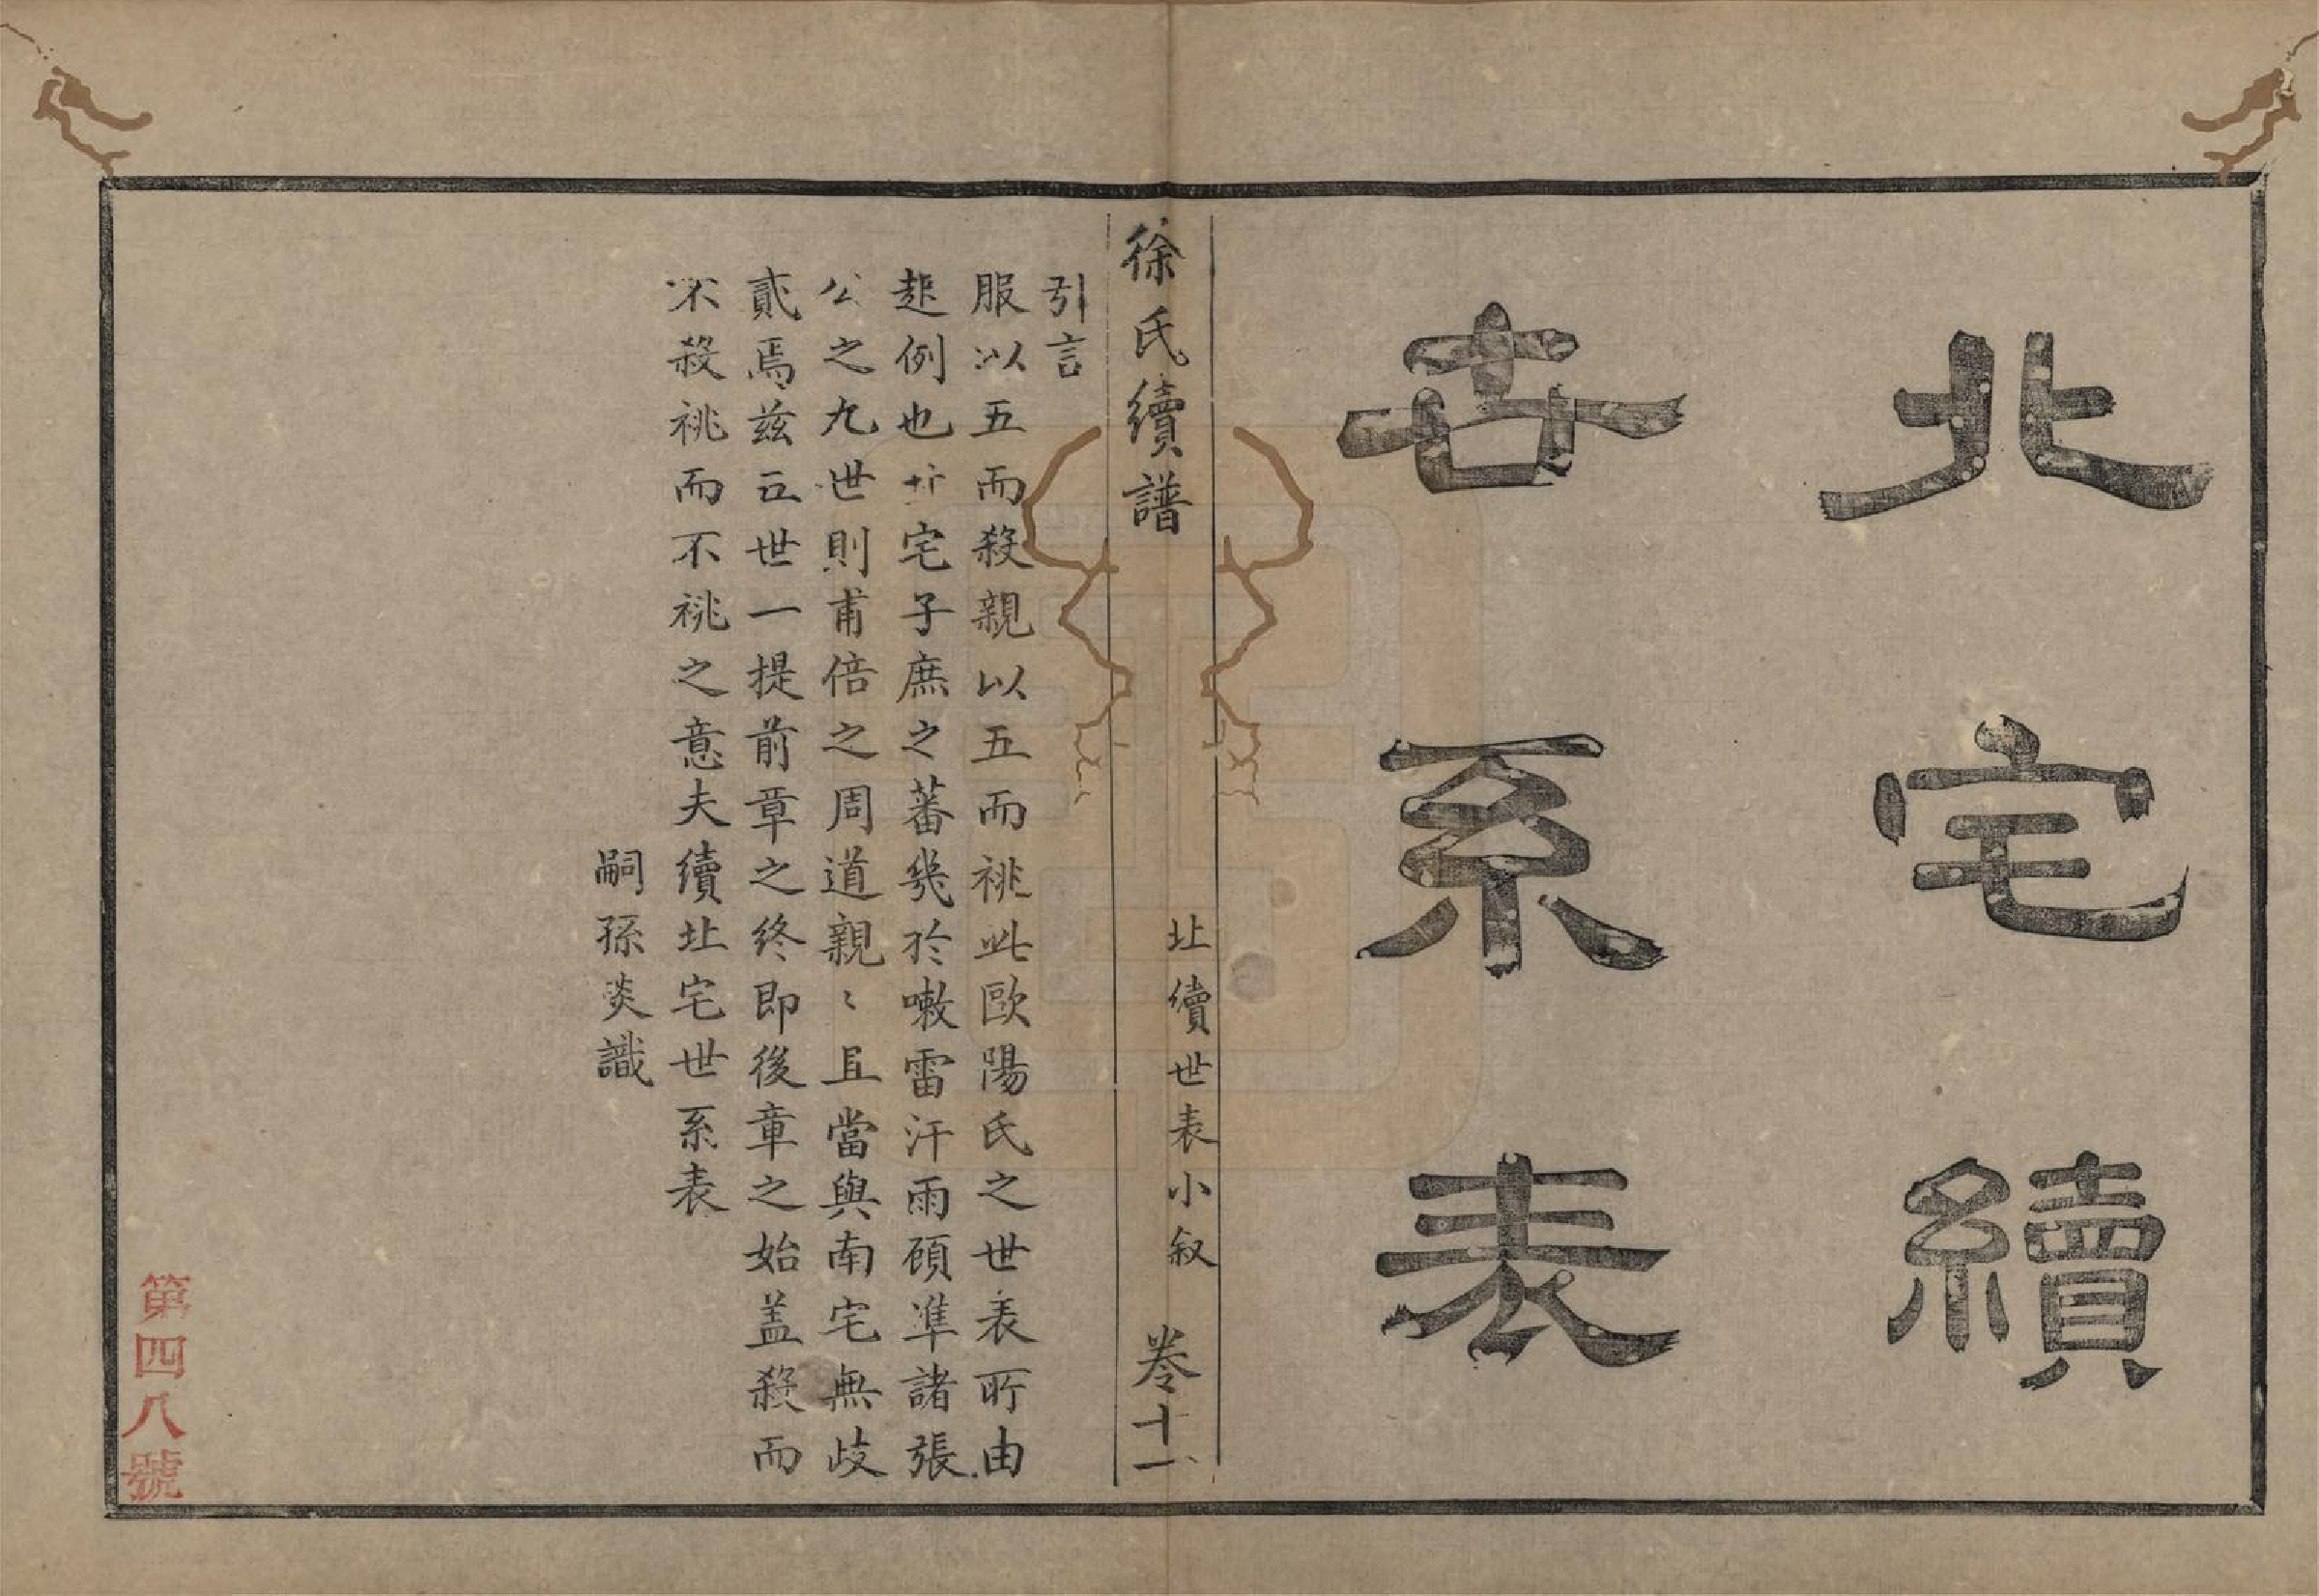 北宅續
世系表
徐氏續譜
北續世表小叙
卷十一
引言
服以五而殺親以五而祧此歐陽氏之世表所由
起例也北宅子庶之蕃幾於嗽雷汗雨顧準諸張
公之九世則甫倍之周道親〻且當與南宅無歧
貳焉茲五世一提前章之終即後章之始盖殺而
不殺祧而不祧之意夫續北宅世系表
嗣孫炎識
第四八號